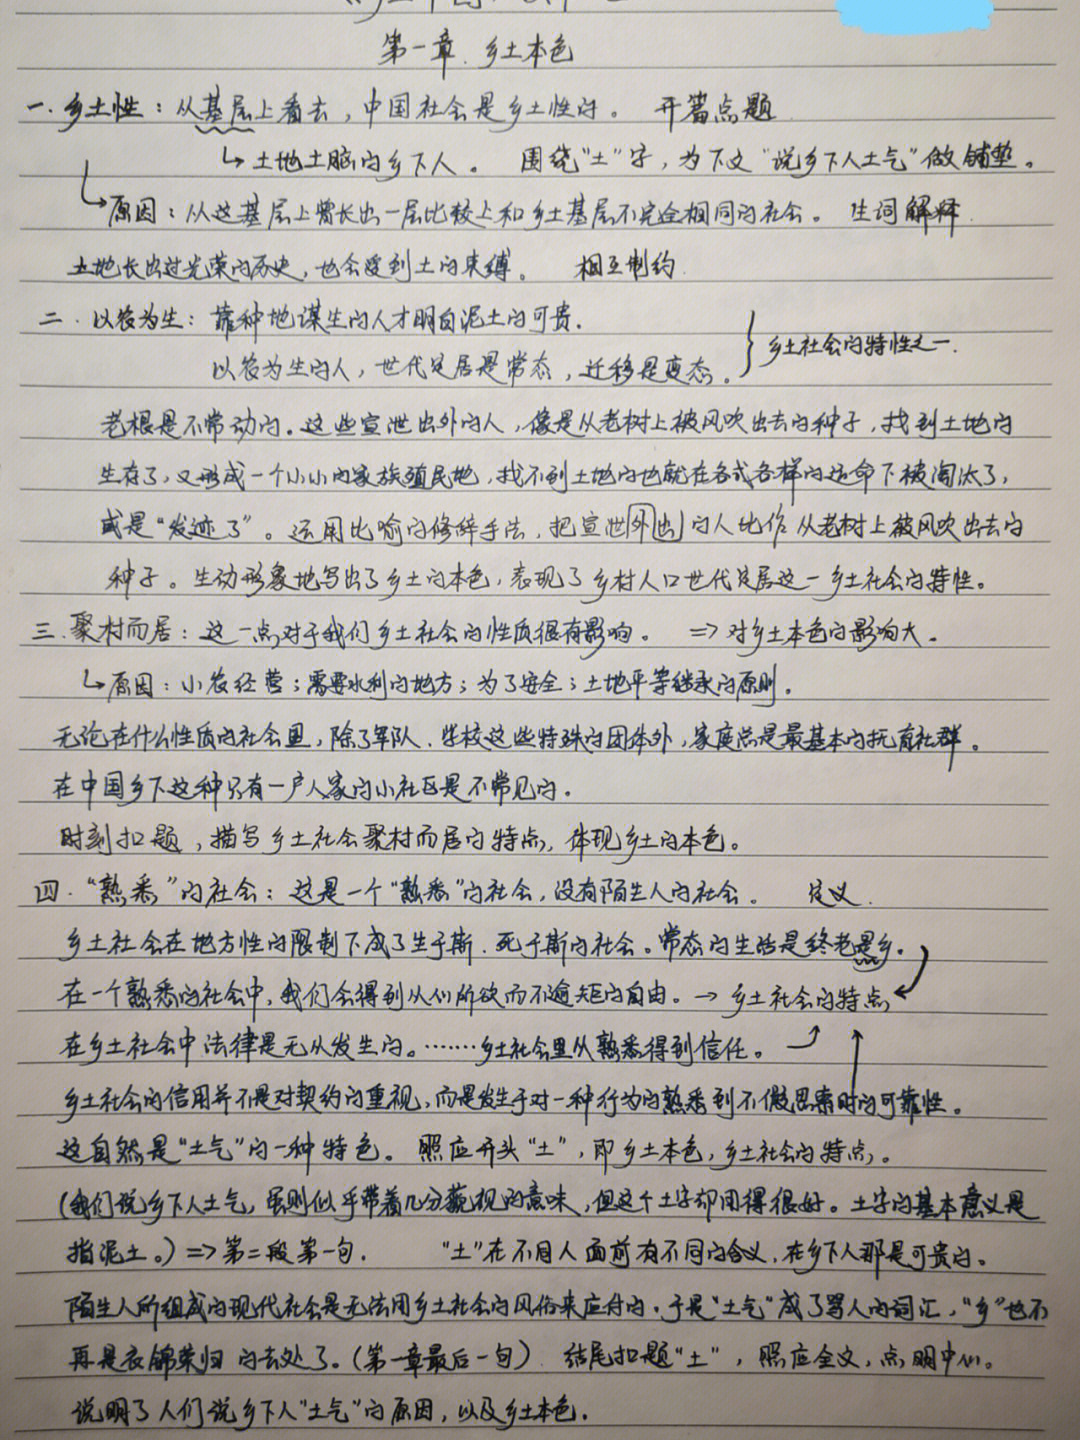 第一章. 乡土本色
一. 乡土性：从基层上看去，中国社会是乡土性的。 开篇点题
↳ 土地土脑的乡下人。 围绕“土”字，为下文“说乡下人土气”做铺垫。
↳ 原因：从这基层上曾长出一层比较上和乡土基层不完全相同的社会。 生词解释.
土地长出过光荣的历史，也会受到土的束缚。 相互制约.
二. 以农为生：靠种地谋生的人才明白泥土的可贵.
以农为生的人，世代定居是常态，迁移是变态。 } 乡土社会的特性之一.
老根是不常动的。这些宣泄出外的人，像是从老树上被风吹出去的种子，找到土地的
生存了，又形成一个小小的家族殖民地，找不到土地的也就在各式各样的运命下被淘汰了，
或是“发迹了”。运用比喻的修辞手法，把宣泄外出的人比作从老树上被风吹出去的
种子。生动形象地写出了乡土的本色，表现了乡村人口世代定居这一乡土社会的特性。
三. 聚村而居：这一点对于我们乡土社会的性质很有影响。 => 对乡土本色的影响大.
↳ 原因：小农经营；需要水利的地方；为了安全；土地平等继承的原则.
无论在什么性质的社会里，除了军队、学校这些特殊的团体外，家庭总是最基本的抚育社群。
在中国乡下这种只有一户人家的小社区是不常见的.
时刻扣题，描写乡土社会聚村而居的特点，体现乡土的本色。
四. “熟悉”的社会：这是一个“熟悉”的社会，没有陌生人的社会。 定义.
乡土社会在地方性的限制下成了生于斯、死于斯的社会。常态的生活是终老是乡.
在一个熟悉的社会中，我们会得到从心所欲而不逾矩的自由。→ 乡土社会的特点
在乡土社会中法律是无从发生的。……乡土社会里从熟悉得到信任。
乡土社会的信用并不是对契约的重视，而是发生于对一种行为的熟悉到不假思索时的可靠性。
这自然是“土气”的一种特色。 照应开头“土”，即乡土本色，乡土社会的特点。
(我们说乡下人土气，虽则似乎带着几分藐视的意味，但这个土字却用得很好。土字的基本意义是
指泥土。) => 第二段第一句. “土”在不同人面前有不同的含义，在乡下人那是可贵的。
陌生人所组成的现代社会是无法用乡土社会的风俗来应付的.于是“土气”成了骂人的词汇，“乡”也不
再是衣锦荣归的去处了。(第一章最后一句) 结尾扣题“土”，照应全文，点明中心。
说明了人们说乡下人“土气”的原因，以及乡土本色.